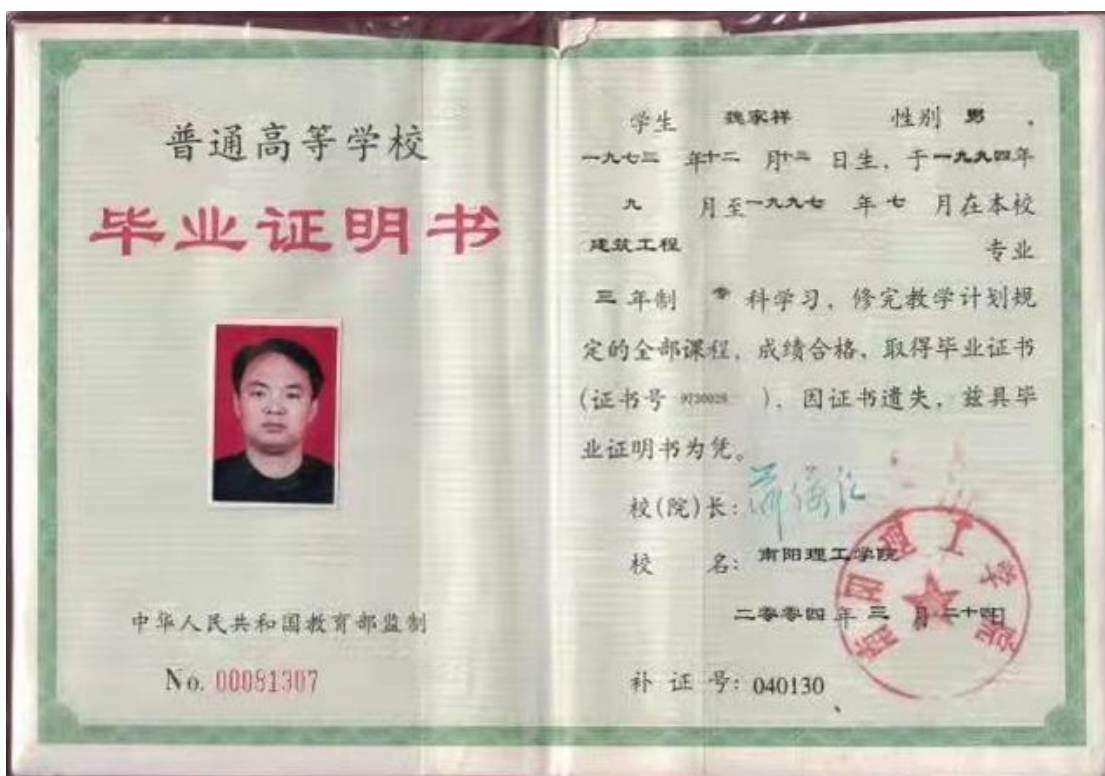 普通高等学校
毕业证明书
中华人民共和国教育部监制
No. 00081307
学生 魏家祥 性别 男 .
一九七三 年十二 月十二 日生, 于一九九四年
九 月至一九九七 年七 月在本校
建筑工程 专业
三 年制 专 科学习, 修完教学计划规
定的全部课程, 成绩合格, 取得毕业证书
(证书号 9730028 ), 因证书遗失, 兹具毕
业证明书为凭。
校(院)长:
校 名: 南阳理工学院
二零零四 年 三 月 二十四日
补 证 号: 040130
南阳理工学院